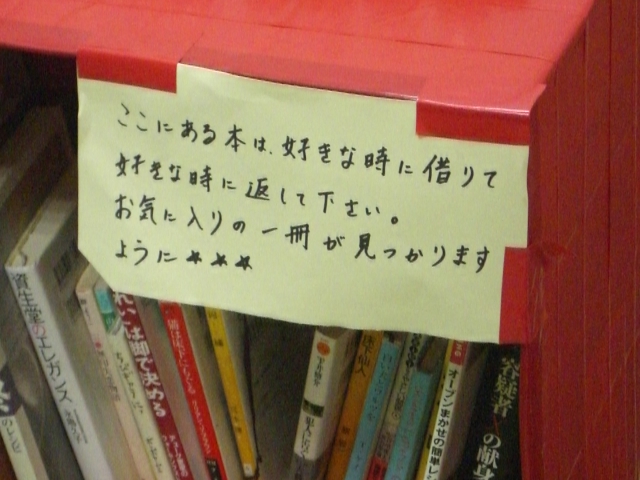 ここにある本は、好きな時に借りて
好きな時に返して下さい。
お気に入りの一冊が見つかります
ように★★★
資生堂のエレガンス
れいは脚で決める
オーブンまかせの簡単レシ
容疑者Xの献身